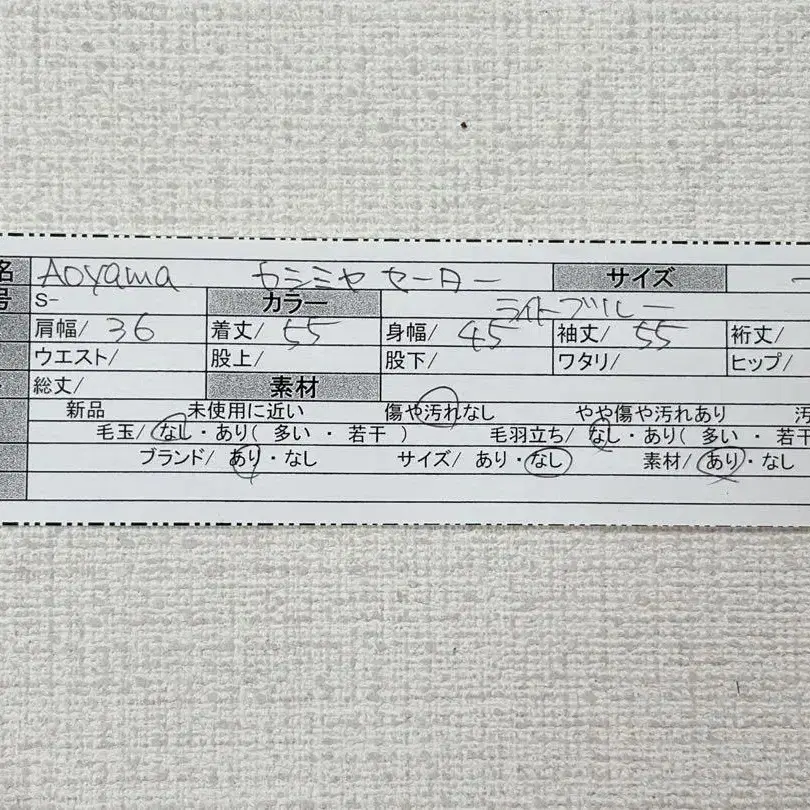 名 Aoyama カシミヤセーター サイズ -
号 S- カラー ライトブルー
肩幅/ 36 着丈/ 55 身幅/ 45 袖丈/ 55 裄丈/
ウエスト/ 股上/ 股下/ ワタリ/ ヒップ/
総丈/ 素材
新品 未使用に近い 傷や汚れなし やや傷や汚れあり 汚
毛玉/ なし・あり( 多い ・ 若干 ) 毛羽立ち/ なし・あり( 多い ・ 若干
ブランド/ あり・なし サイズ/ あり・なし 素材/ あり・なし